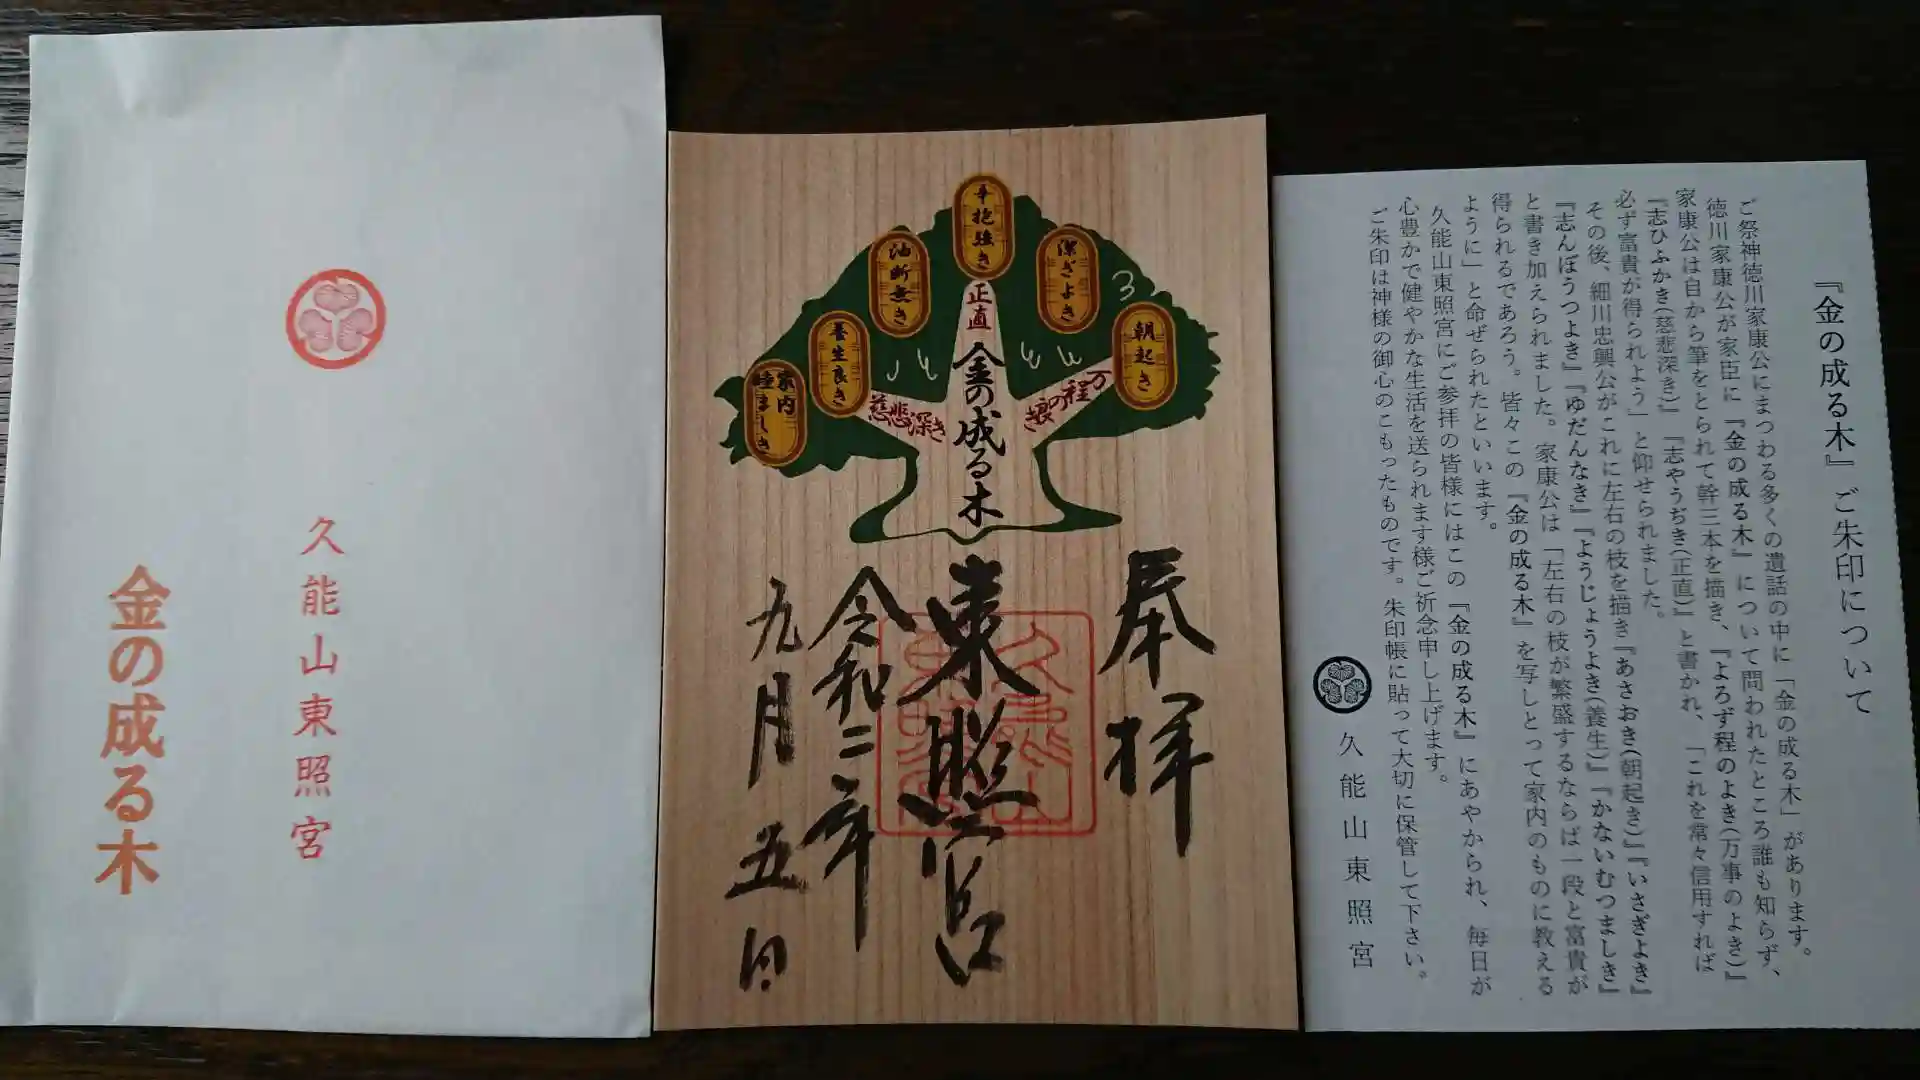 久能山東照宮
金の成る木
辛抱強き
潔ぎよき
油断無き
朝起き
養生良き
家内
睦ましき
正直
万程の娘き
慈悲深き
金の成る木
奉拝
東照宮
令和二年
九月五日
『金の成る木』ご朱印について
ご祭神徳川家康公にまつわる多くの遺話の中に「金の成る木」があります。
徳川家康公が家臣に『金の成る木』について問われたところ誰も知らず、
家康公は自から筆をとられて幹三本を描き、『よろず程のよき(万事のよき)』
『志ひふかき(慈悲深き)』『志やうぢき(正直)』と書かれ、「これを常々信用すれば
必ず富貴が得られよう」と仰せられました。
その後、細川忠興公がこれに左右の枝を描き『あさおき(朝起き)』『いさぎよき』
『志んぼうつよき』『ゆだんなき』『ようじょうよき(養生)』『かないむつましき』
と書き加えられました。家康公は「左右の枝が繁盛するならば一段と富貴が
得られるであろう。皆々この『金の成る木』を写しとって家内のものに教える
ように」と命ぜられたといいます。
久能山東照宮にご参拝の皆様にはこの『金の成る木』にあやかられ、毎日が
心豊かで健やかな生活を送られます様ご祈念申し上げます。
ご朱印は神様の御心のこもったものです。朱印帳に貼って大切に保管して下さい。
久能山東照宮